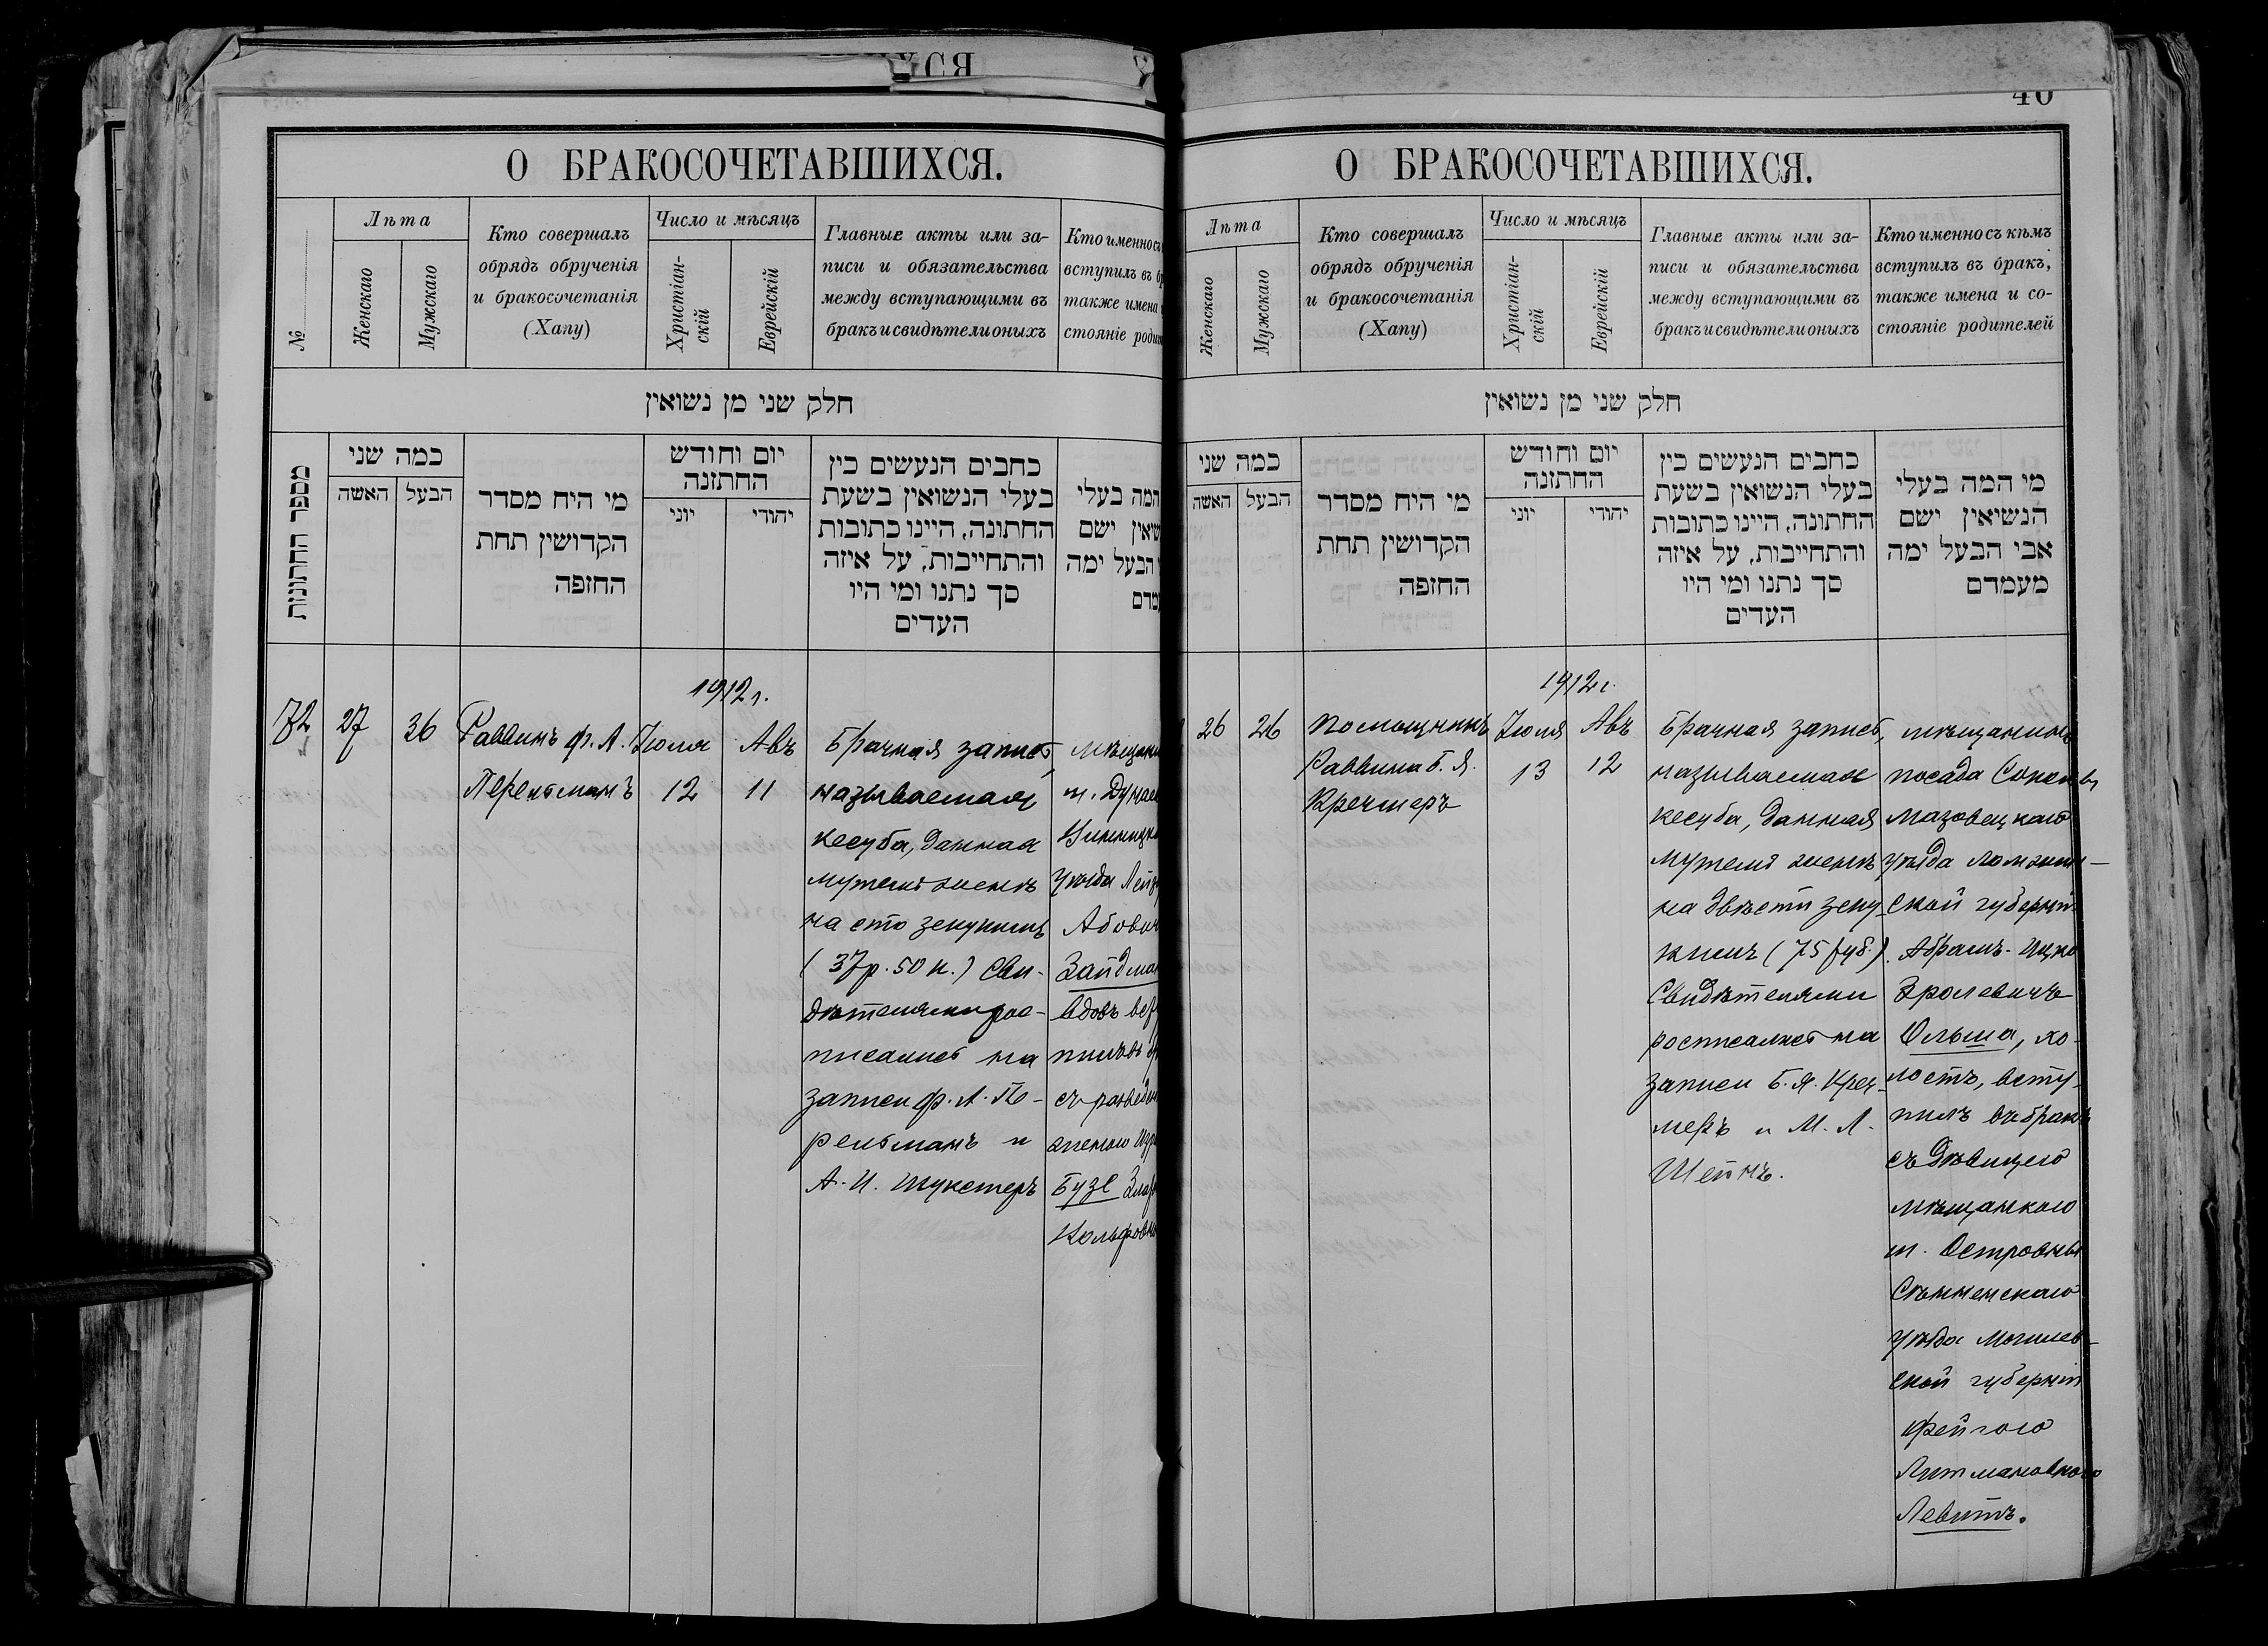 О БРАКОСОЧЕТАВШИХСЯ.
№
Лѣта
Женскаго
Мужскаго
Кто совершалъ
обрядъ обрученія
и бракосочетанія
(Хапу)
Число и мѣсяцъ
Христіан-
скій
Еврейскій
Главные акты или за-
писи и обязательства
между вступающими въ
бракъ и свидѣтели оныхъ
Кто именно съ
вступилъ въ
также имена
стояніе
חלק שני מן נשואין
מספר החתונות
כמה שני
האשה
הבעל
מי היח מסדר
הקדושין תחת
החופה
יום וחודש
החתונה
יוני
יהודי
כתבים הנעשים בין
בעלי הנשואין בשעת
החתונה, היינו כתובות
והתחייבות, על איזה
סך נתנו ומי היו
העדים
המה בעלי
ישם
הבעל ימה
72
27
36
Раввинъ Ф. Л.
Перельманъ
1912 г.
Іюля
12
Авъ
11
Брачная запись,
называемая
кесуба, данная
мужемъ женѣ
на сто зекукимъ
(37 р. 50 к.) Сви-
дѣтелями рос-
писались на
записи Ф. Л. Пе-
рельманъ и
А. И. Шукстеръ
м.
уѣзда
вдовъ
Бузе
40
О БРАКОСОЧЕТАВШИХСЯ.
Лѣта
Женскаго
Мужскаго
Кто совершалъ
обрядъ обрученія
и бракосочетанія
(Хапу)
Число и мѣсяцъ
Христіан-
скій
Еврейскій
Главные акты или за-
писи и обязательства
между вступающими въ
бракъ и свидѣтели оныхъ
Кто именно съ кѣмъ
вступилъ въ бракъ,
также имена и со-
стояніе родителей
חלק שני מן נשואין
כמה שני
האשה
הבעל
מי היח מסדר
הקדושין תחת
החופה
יום וחודש
החתונה
יוני
יהודי
כתבים הנעשים בין
בעלי הנשואין בשעת
החתונה, היינו כתובות
והתחייבות, על איזה
סך נתנו ומי היו
העדים
מי המה בעלי
הנשיאין ישם
אבי הבעל ימה
מעמדם
26
26
Помощникъ
Раввина Б. Я.
Кречмеръ
1912 г.
Іюля
13
Авъ
12
Брачная запись,
называемая
кесуба, данная
мужемъ женѣ
на двѣсти зеку-
кимъ (75 руб.).
Свидѣтелями
росписались на
записи Б. Я. Креч-
меръ и М. Л.
Шейнъ.
мѣщанинъ
посада Соколы
Мазовецкаго
уѣзда Ломжин-
ской губерніи
Абрамъ-Ицко
Сролевичъ
Ольша, хо-
лостъ, всту-
пилъ въ бракъ
съ дѣвицею
мѣщанкою
м. Островны
Сѣнненскаго
уѣзда Могилев-
ской губерніи
Фейгою
Литмановною
Левитъ.